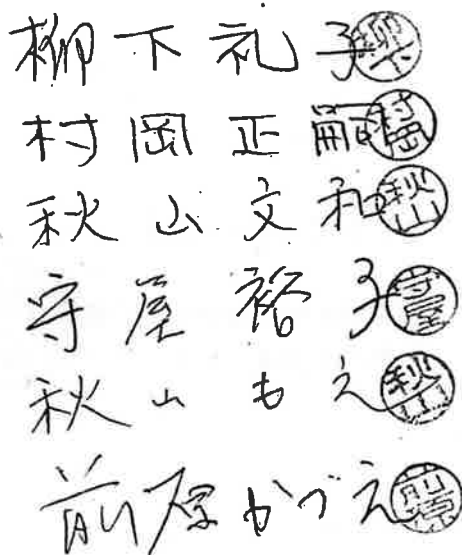 柳下礼子 柳下
村岡正嗣 村岡
秋山文和 秋山
守屋裕子 守屋
秋山もえ 秋山
前原かづえ 前原